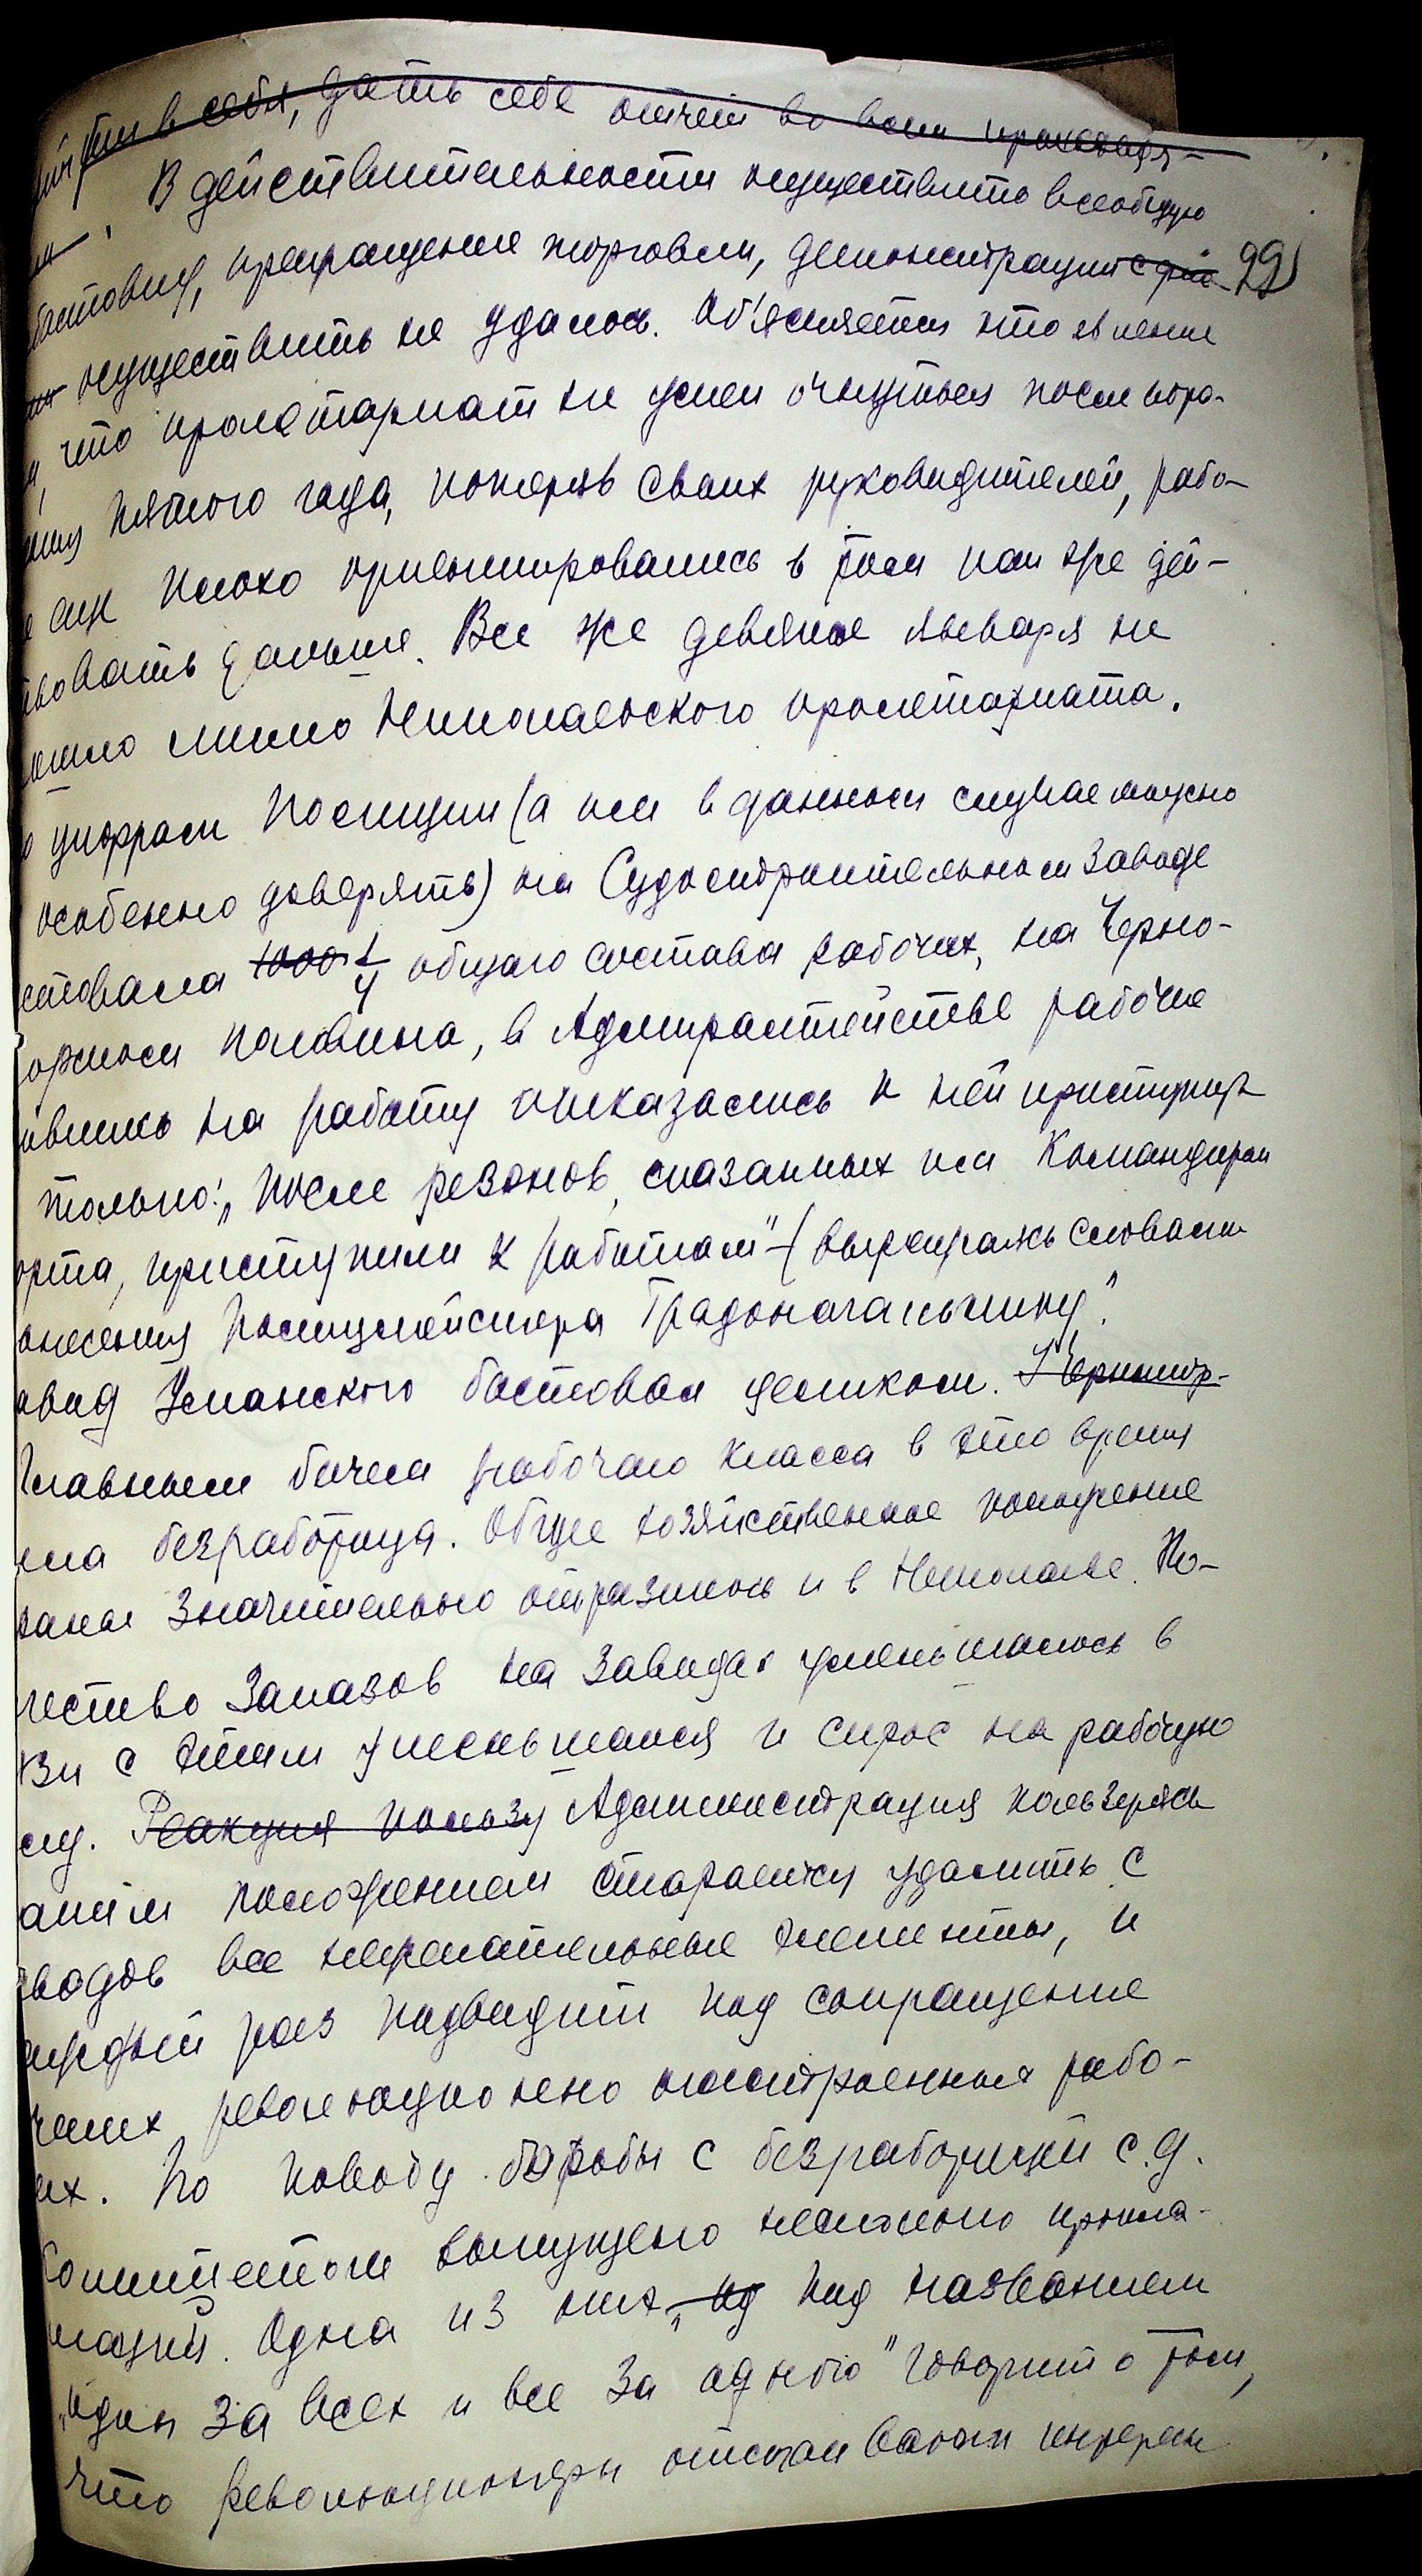 в себя, дать себе отчет во всем происходя-
В действительности осуществить всеобщую
бастовку, прекращение торговли, демонстрации с фла 99)
осуществить не удалось. Об'ясняется это явление
что пролетариат не успел очнуться после пора-
пятого года, потеряв своих руководителей, рабо-
плохо ориентировались в том как же дей-
твовать дальше. Все же девятое января не
ошло мимо Николаевского пролетариата.
цифрам полиции (а им в данном случае можно
особенно доверять) на Судостроительном заводе
стовала 1000 1/4 общаго состава рабочих, на Черно-
орском половина, в Адмиралтействе рабочие
ившись на работу отказались к ней приступить
только: „после резонов, сказанных им Командиром
орта, приступили к работам" – (выражаясь словами
онесения Полицмейстера Градоначальнику".
авод Уманского бастовал целиком. Черномор-
Главным бичем рабочаго класса в это время
ла безработица. Общее хозяйственное положение
раны значительно отразилось и в Николаеве. Ко-
чество заказов на заводах уменьшилось в
язи с этим уменьшался и спрос на рабочую
лу. Реакция пользу Администрация пользуясь
аким положением старается удалить с
водов все нежелательные элементы, и
аждый раз подводит под сокращение
революционно настроенных рабо-
их. По поводу борьбы с безработицей с.д.
Комитетом выпущено несколько прокла-
маций. Одна из них, под под названием
„Один за всех и все за одного" говорит о том,
что революционеры отстаивают интересы